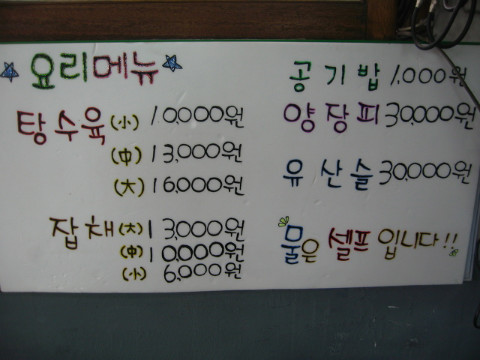 요리메뉴
탕수육 (小) 10,000원
(中) 13,000원
(大) 16,000원
잡채 (大) 13,000원
(中) 10,000원
(小) 6,000원
공기밥 1,000원
양장피 30,000원
유산슬 30,000원
물은 셀프 입니다!!